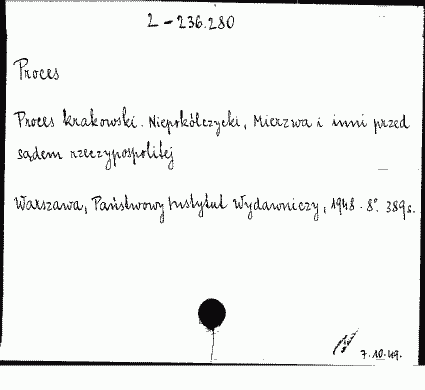 2 - 236.280
Proces
Proces krakowski. Niepokólczycki, Mierzwa i inni przed
sądem rzeczypospolitej
Warszawa, Państwowy Instytut Wydawniczy, 1948. 8°. 389 s.
7.10.49.